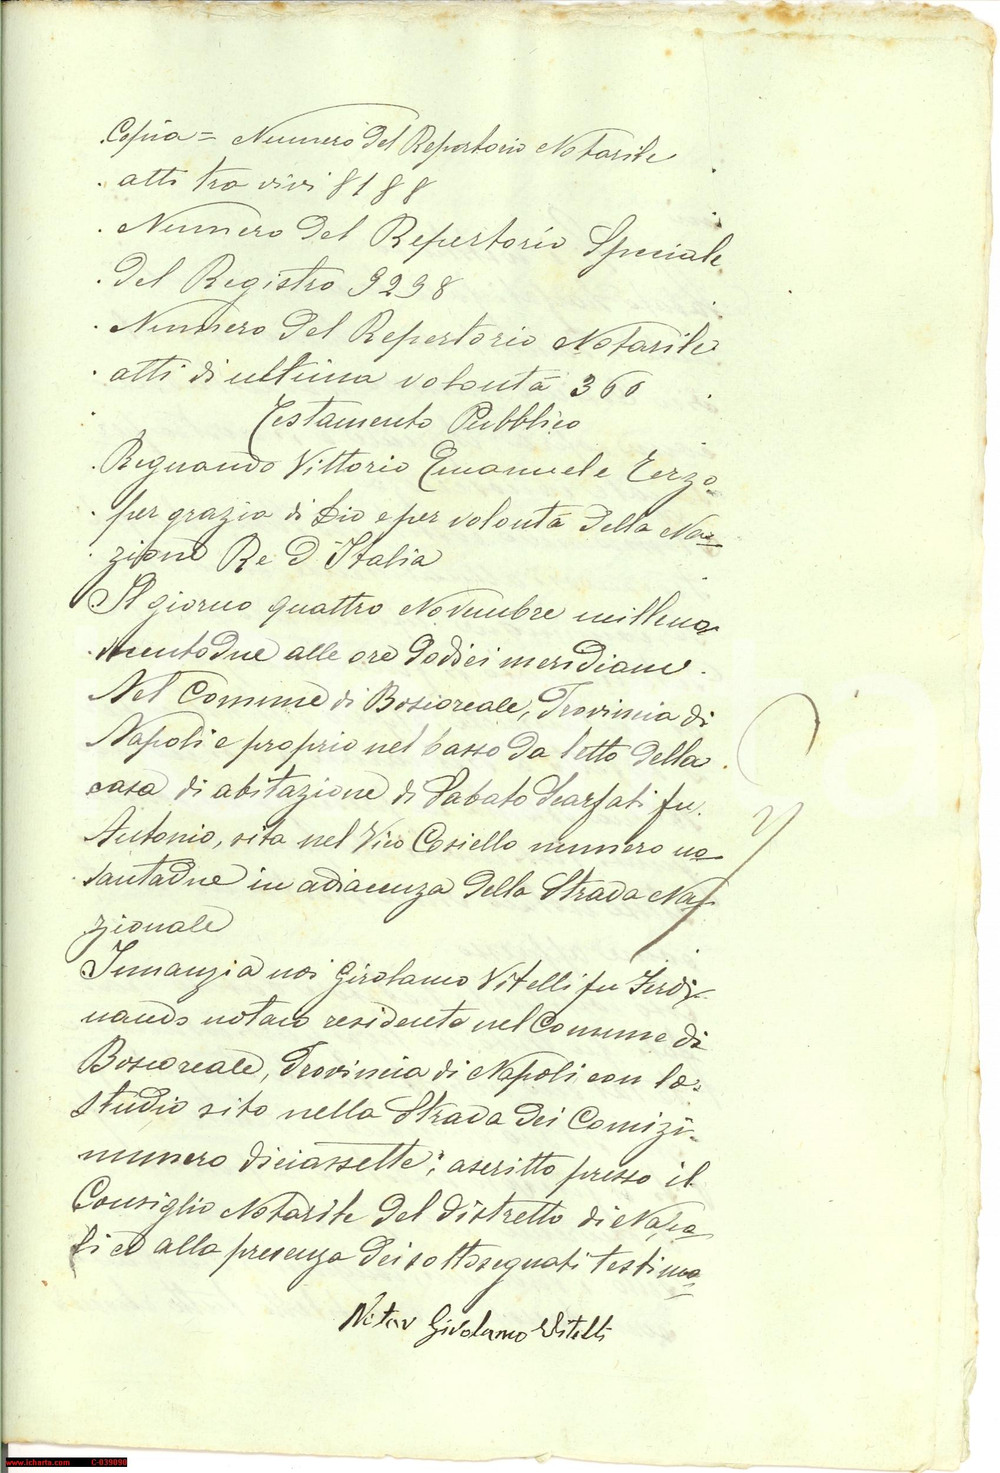 Copia = Numero del Repertorio Notarile
atti tra vivi 8188
Numero del Repertorio Speciale
del Registro 9298
Numero del Repertorio Notarile
atti di ultima volontà 360
Testamento Pubblico
Regnando Vittorio Emanuele Terzo
per grazia di Dio e per volontà della Na=
zione Re d'Italia
Il giorno quattro Novembre milleno
vecentodue alle ore dodici meridiane.
Nel Comune di Boscoreale, Provincia di
Napoli e proprio nel basso da letto della
casa di abitazione di Sabato Scarfati fu
Antonio, sita nel Vico Casiello numero no
vantadue in adiacenza della Strada Na
zionale
Innanzi a noi Girolamo Vitelli fu Ferdi
nando notaro residente nel Comune di
Boscoreale, Provincia di Napoli con lo
studio sito nella Strada dei Comizi
numero diciassette, ascritto presso il
Consiglio Notarile del distretto di Napo
li ed alla presenza dei sottosegnati testimo
Notar Girolamo Vitelli
www.icharta.com C-039090